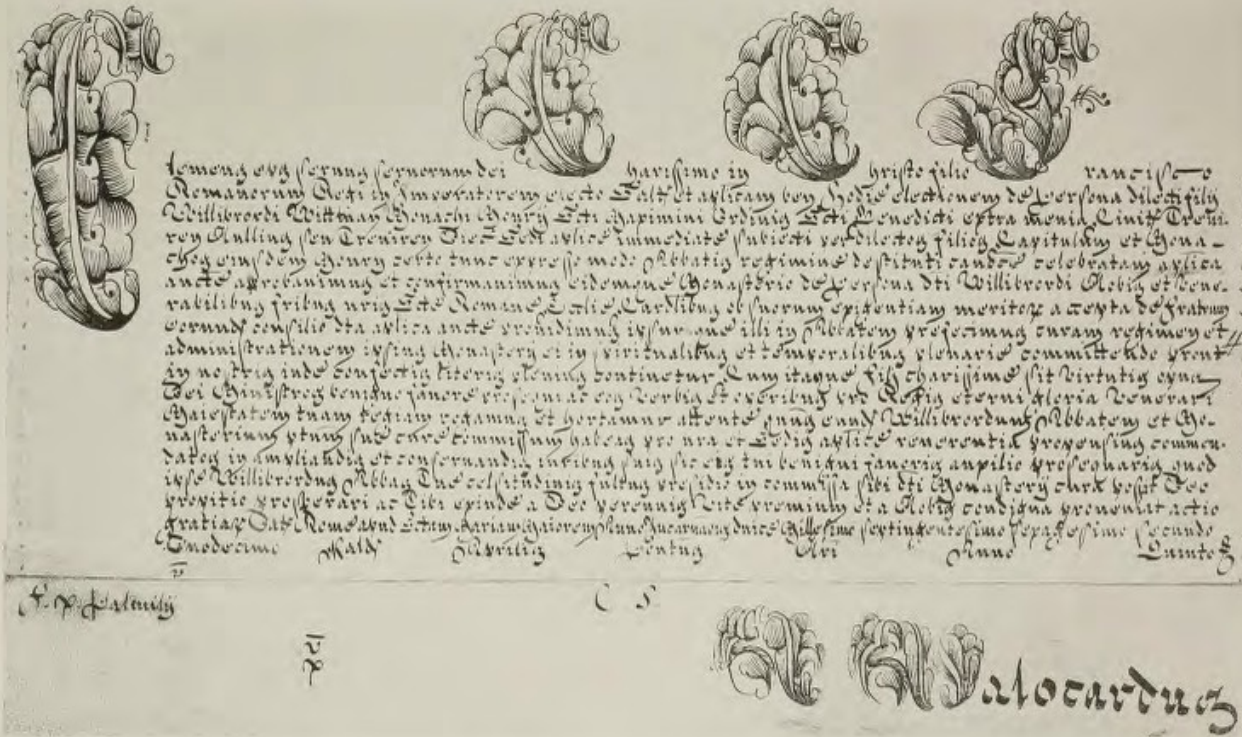 Clemens eps servus servorum dei Charissimo in Christo filio Francisco
Romanorum Regi in Imperatorem electo Salt et aplicam ben Hodie electionem de persona dilecti filij
Willibrordi Wittman Monachi Monrij Scti Maximini Ordinis Scti Benedicti extra menia Civit Treviren
ren Nullius seu Treviren Dioc Sedi aplice immediate subiecti per dilectos filios Capitulum et Mona-
chos eiusdem Monrij certo tunc expresso modo Abbatis regimine destituti canonice celebratam aplica
aucte approbavimus et confirmavimus eidemque Monasterio de persona dti Willibrordi Nobis et vene-
rabilibus fribus nris Scte Romane Ecclie Cardlibus ob suorum exigentiam meritor accepta de fratrum
eorund consilio dta aplica aucte providimus ipsumque illi in Abbatem prefecimus curam regimen et
administrationem ipsius Monasterij ei in spiritualibus et temporalibus plenarie committendo prout
in nostris inde confectis literis plenius continetur Cum itaque fili charissime sit virtutis opus
Dei Ministros benigno favore prosequi ac eos verbis et operibus pro Regis eterni gloria venerari
Maiestatem tuam regiam rogamus et hortamur attente quatenus eund Willibrordum Abbatem et Mo-
nasterium ptum sue cure commissum habeas pro nra et Sedis aplice reverentia propensius commen-
datos in ampliandis et conservandis iuribus suis sic eos tui benigni favoris auxilio prosequaris quod
ipse Willibrordus Abbas Tue celsitudinis fultus presidio in commisso sibi dti Monasterij cura possit Deo
propitio prosperari ac Tibi exinde a Deo perennis vite premium et a Nobis condigna proveniat actio
gratiar Dat Rome apud Sctam Mariam Maiorem Anno Incarnaonis dnice Millesimo septingentesimo sexagesimo secundo
Duodecimo Kald Aprilis Pontus Nri Anno Quinto
F. P. Palmilij
C S